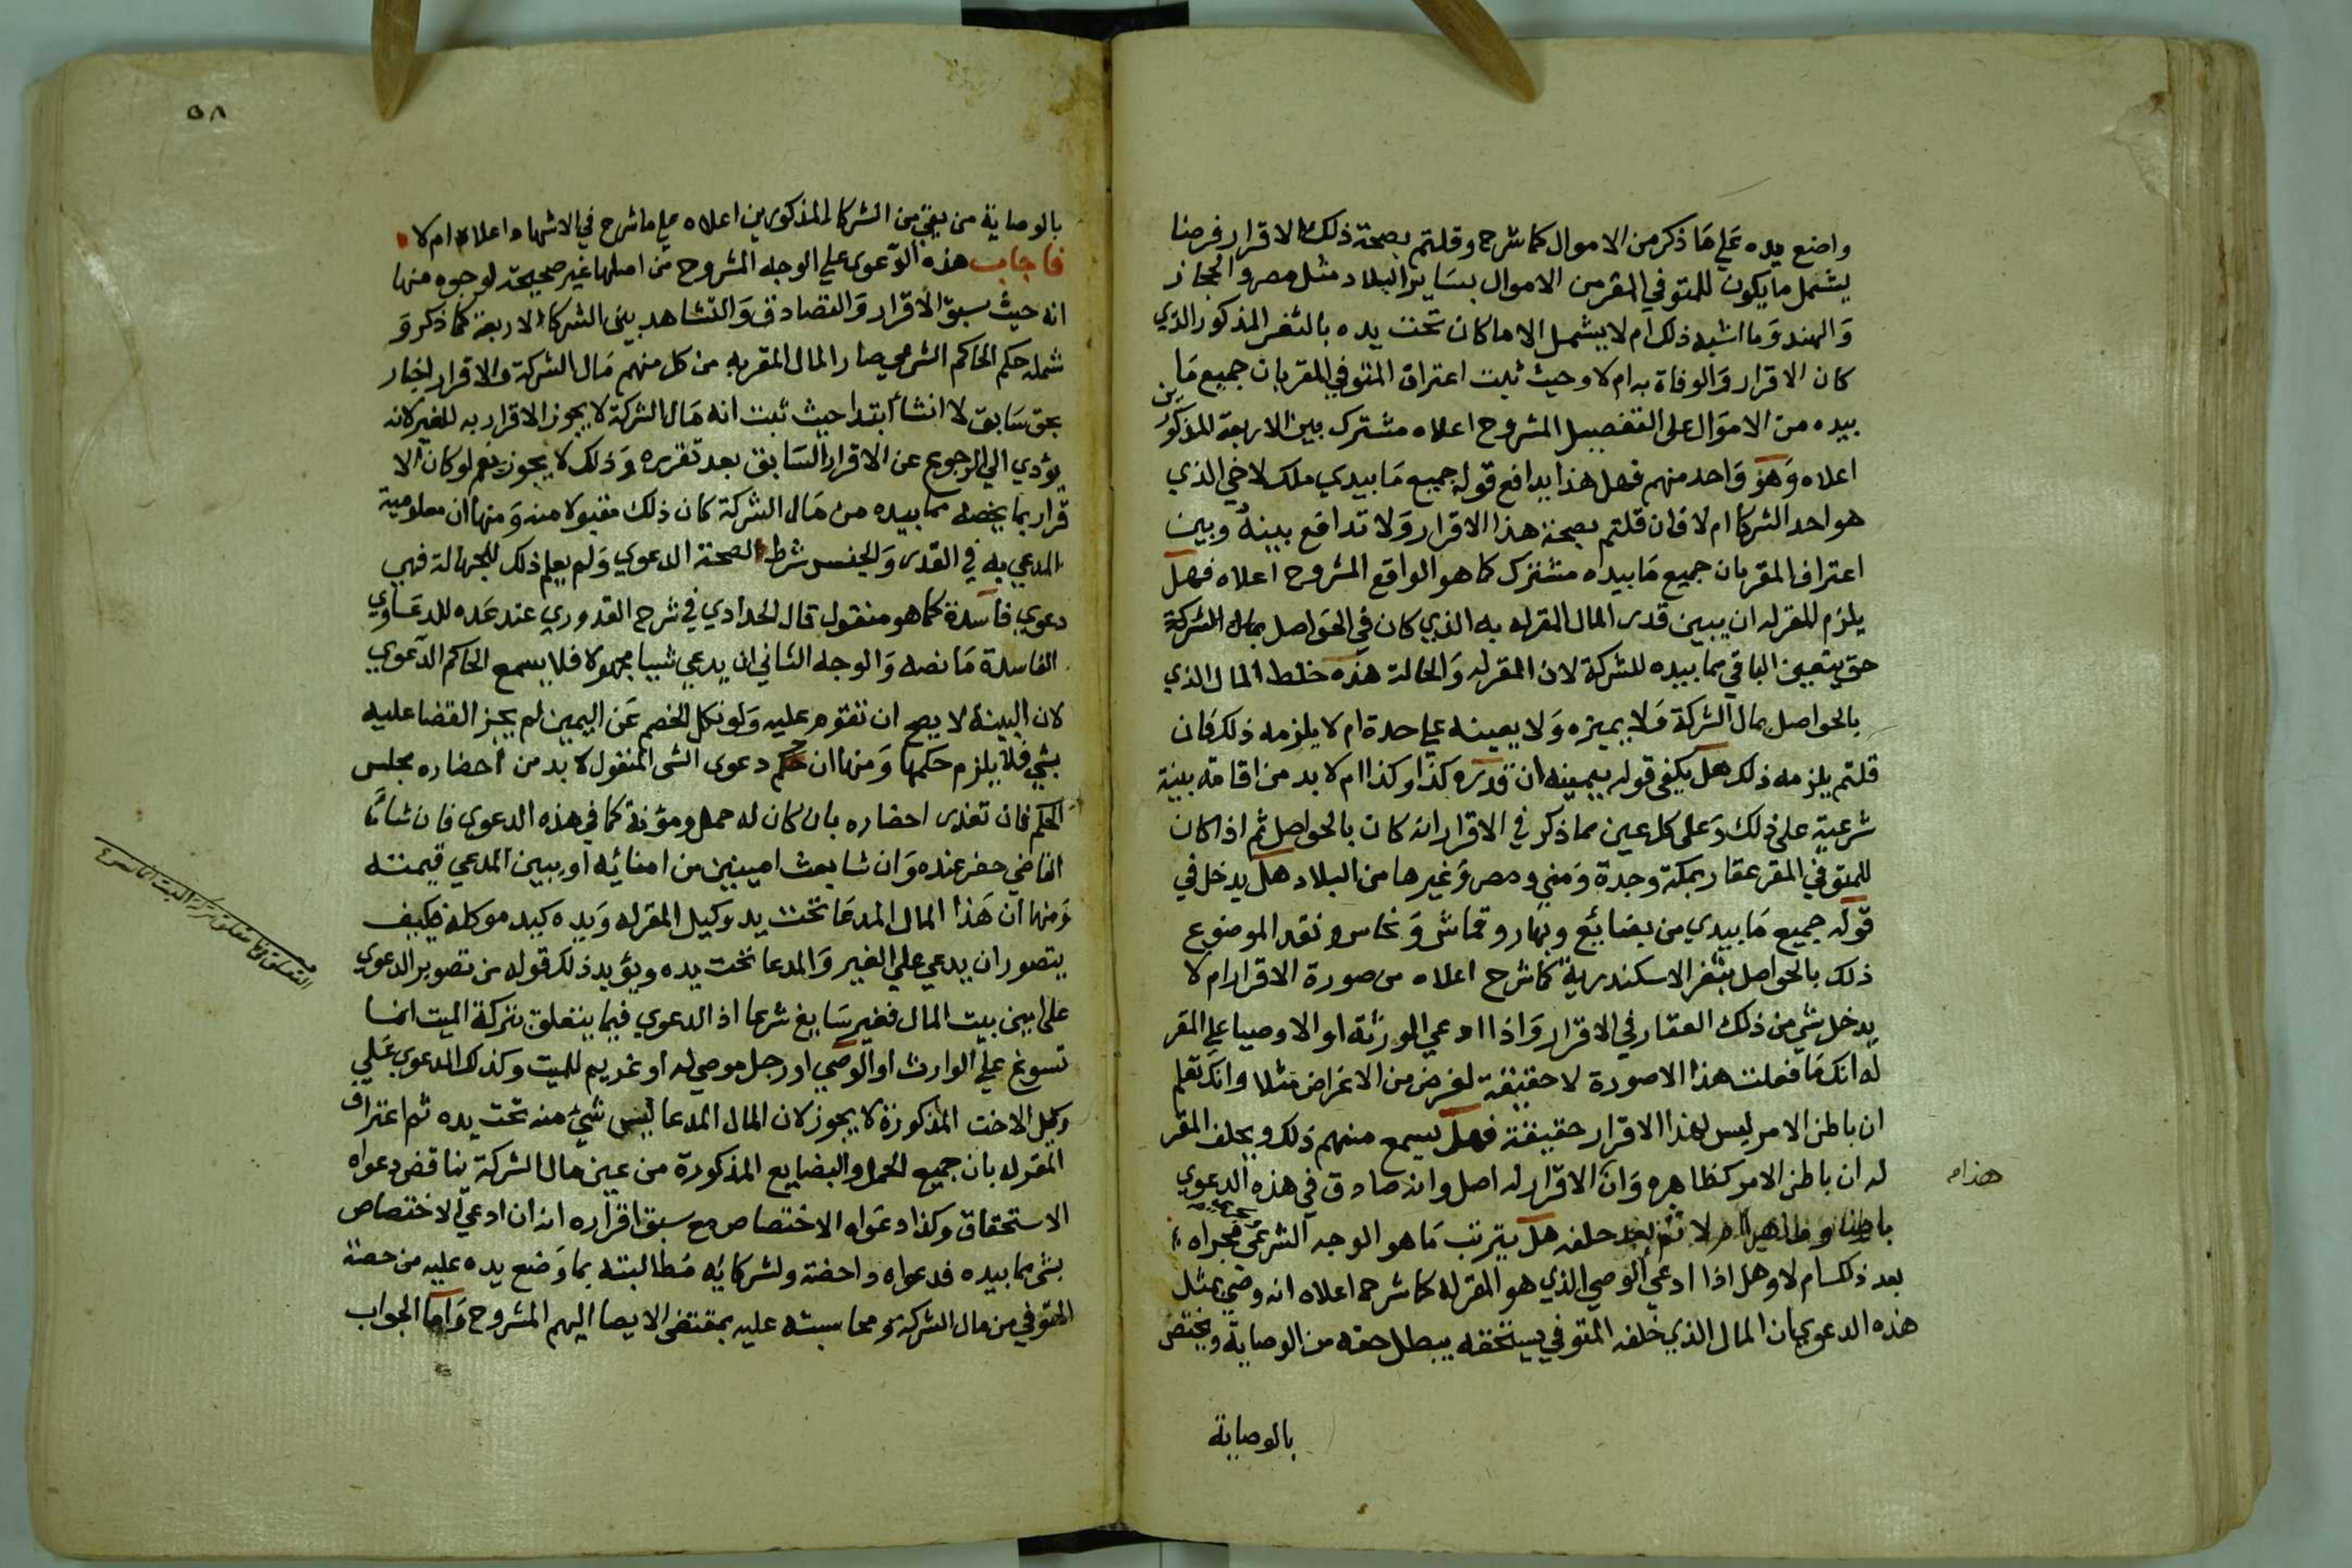 واضع يده علي ما ذكر من الاموال كما شرح وقلتم بصحة ذلك الاقرار فرضا
يشمل ما يكون للمتوفي المقر من الاموال بساير البلاد مثل مصر والحجاز
والهند وما اشبه ذلك ام لا يشمل الا ما كان تحت يده بالثغر المذكور الذي
كان الاقرار والوفاة به ام لا وحيث ثبت اعتراف المتوفي المقر بان جميع ما
بيده من الاموال على التفصيل المشروح اعلاه مشترك بين الاربعة المذكورين
اعلاه وهو واحد منهم فهل هذا يدافع قوله جميع ما بيدي ملك لاخي الذي
هو احد الشركا ام لا فان قلتم بصحة هذا الاقرار ولا تدافع بينه وبين
اعتراف المقر بان جميع ما بيده مشترك كما هو الواقع المشروح اعلاه فهل
يلزم المقر له ان يبين قدر المال المقر له به الذي كان في الحواصل بمال الشركة
حتى يتعين الباقي مما بيده للشركة لان المقر له والحالة هذه خلط المال الذي
بالحواصل بمال الشركة ولا يميزه ولا يعينه علي حدة ام لا يلزمه ذلك فان
قلتم يلزمه ذلك هل يكفى قوله بيمينه ان قدره كذا وكذا ام لا بد من اقامة بينة
شرعية على ذلك وعلى كل عين مما ذكر في الاقرار انه كان بالحواصل ثم اذا كان
للمتوفي المقر عقار بمكة وجدة ومني ومصر وغيرها من البلاد هل يدخل في
قوله جميع ما بيدي من بضائع وبهار وقماش ونحاس ونقد الموضوع
ذلك بالحواصل بثغر الاسكندرية كما شرح اعلاه من صورة الاقرار ام لا
يدخل شي من ذلك العقار في الاقرار واذا ادعي الورثة او الاوصيا علي المقر
له انك ما فعلت هذا الا صورة لا حقيقة لغرض من الاغراض مثلا وانك تعلم
ان باطن الامر ليس لهذا الاقرار حقيقة فهل يسمع منهم ذلك ويحلف المقر
له ان باطن الامر كظاهره وان الاقرار له اصل وانه صادق في هذه الدعوي
هذا م
باطنا وظاهرا ام لا ثم بعد حلفه هل يترتب ما هو الوجه الشرعي مجراه
بعد ذلك ام لا وهل اذا ادعي الوصي الذي هو المقر له كما شرح اعلاه انه وصي بمثل
هذه الدعوي بان المال الذي خلفه المتوفي يستحقه يبطل حقه من الوصاية ويختص
بالوصاية
٥٨
بالوصاية من بقي من الشركا المذكورين اعلاه علي ما شرح في الاشهاد اعلاه ام لا
فاجاب هذه الدعوى علي الوجه المشروح من اصلها غير صحيحة لوجوه منها
انه حيث سبق الاقرار والتصادق والتشاهد بين الشركا الاربعة كما ذكر و
شمله حكم الحاكم الشرعي صار المال المقر به من كل منهم مال الشركة والاقرار اخبار
بحق سابق لا انشا ابتدا حيث ثبت انه مال الشركة لا يجوز الاقرار به للغير لانه
يؤدي الي الرجوع عن الاقرار السابق بعد تقرره وذلك لا يجوز نعم لو كان الا
قرار بما يخصه مما بيده من مال الشركة كان ذلك مقبولا منه ومنها ان معلومية
المدعي به في القدر والجنس شرط لصحة الدعوي ولم يعلم ذلك للجهالة فهي
دعوي فاسدة كما هو منقول قال الحدادي في شرح القدوري عند عده للدعاوي
الفاسدة ما نصه والوجه الثاني ان يدعي شيا مجهولا فلا يسمع الحاكم الدعوي
لان البينة لا يصح ان تقوم عليه ولو نكل الخصم عن اليمين لم يجز القضا عليه
بشي فلا يلزم حكمها ومنها ان حكم دعوى الشى المنقول لا بد من احضاره مجلس
الحكم فان تعذر احضاره بان كان له حمل ومؤنة كما في هذه الدعوى فان شا
القاضي حضر عنده وان شا بعث امينين من امنائه او يبين المدعي قيمته
ومنها ان هذا المال المدعا تحت يد وكيل المقر له ويده كيد موكله فكيف
يتصور ان يدعي علي الغير والمدعا تحت يده ويؤيد ذلك قوله من تصوير الدعوي
على امين بيت المال فغير سايغ شرعا اذ الدعوي فيما يتعلق بتركة الميت انما
تسوغ علي الوارث او الوصي او رجل موصي له او غريم للميت وكذلك المدعوي علي
وكيل الاخت المذكورة لا يجوز لان المال المدعا ليس شي منه تحت يده ثم اعتراف
المقر له بان جميع الحمل والبضايع المذكورة من عين مال الشركة يناقض دعواه
الاستحقاق وكذا دعواه الاختصاص مع سبق اقراره انه ان ادعي الاختصاص
بشي مما بيده فدعواه داحضة ولشركايه مطالبته بما وضع يده عليه من حصة
المتوفي من مال الشركة ومحاسبته عليه بمقتضى الايصا اليهم المشروح واما الجواب